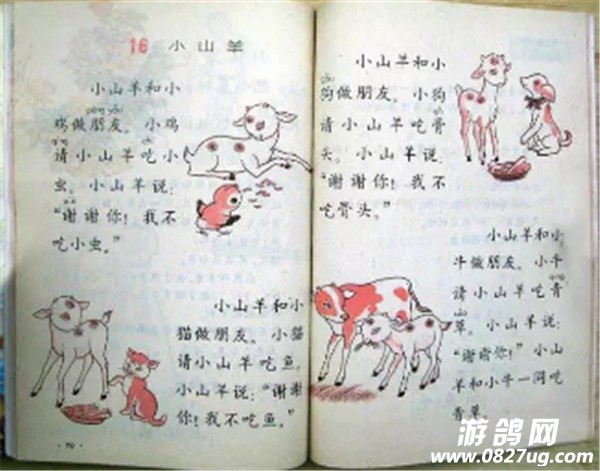 16 小山羊
小山羊和小
鸡做朋友。小鸡
请小山羊吃小
虫。小山羊说:
“谢谢你!我不
吃小虫。”
小山羊和小
猫做朋友。小猫
请小山羊吃鱼。
小山羊说:“谢谢
你!我不吃鱼。”
·70·
小山羊和小
狗做朋友。小狗
请小山羊吃骨
头。小山羊说:
“谢谢你!我不
吃骨头。”
小山羊和小
牛做朋友。小牛
请小山羊吃青
草。小山羊说:
“谢谢你!”小山
羊和小牛一同吃
青草。
游鸽网
www.0827ug.com